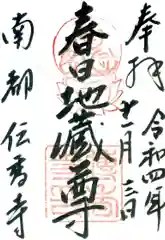 奉拝
令和四年
廿一月三日
春日地蔵尊
南都
伝香寺